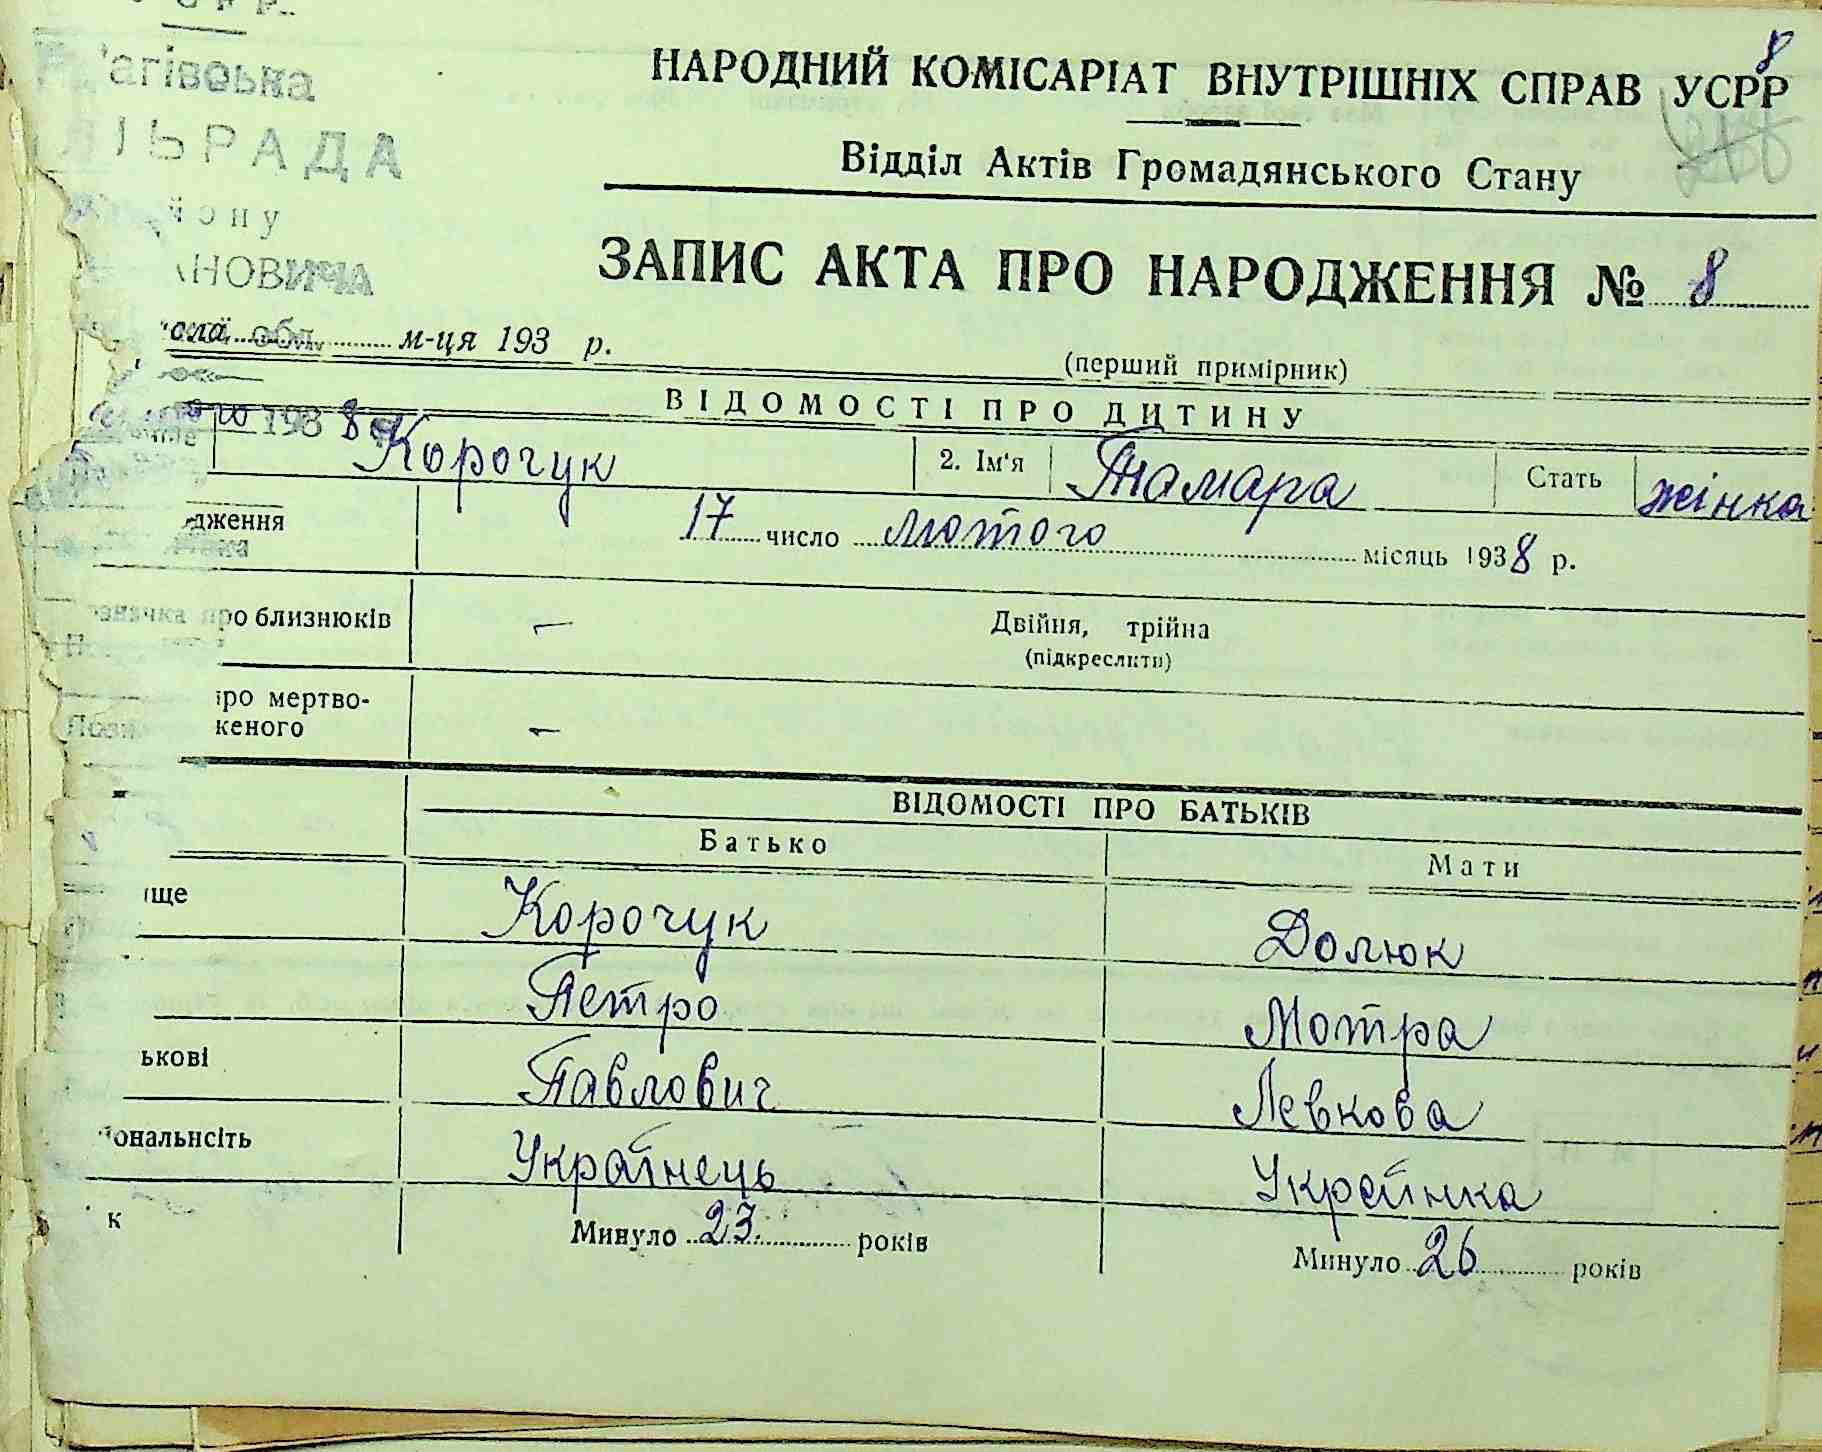 8
НАРОДНИЙ КОМІСАРІАТ ВНУТРІШНІХ СПРАВ УСРР
Відділ Актів Громадянського Стану
агівська
ЛЬРАДА
йону
АНОВИЧА
обл.
м-ця 193 р.
ЗАПИС АКТА ПРО НАРОДЖЕННЯ № 8
(перший примірник)
ВІДОМОСТІ ПРО ДИТИНУ
198 8
Корочук 2. Ім'я Тамара Стать жінка
дження 17 число лютого місяць 1938 р.
значка про близнюків – Двійня, трійна
(підкреслити)
про мертво-
женого –
ВІДОМОСТІ ПРО БАТЬКІВ
Батько Мати
ище Корочук Долюк
Петро Мотра
ькові Павлович Левкова
іональнсіть Українець Українка
к Минуло 23 років Минуло 26 років